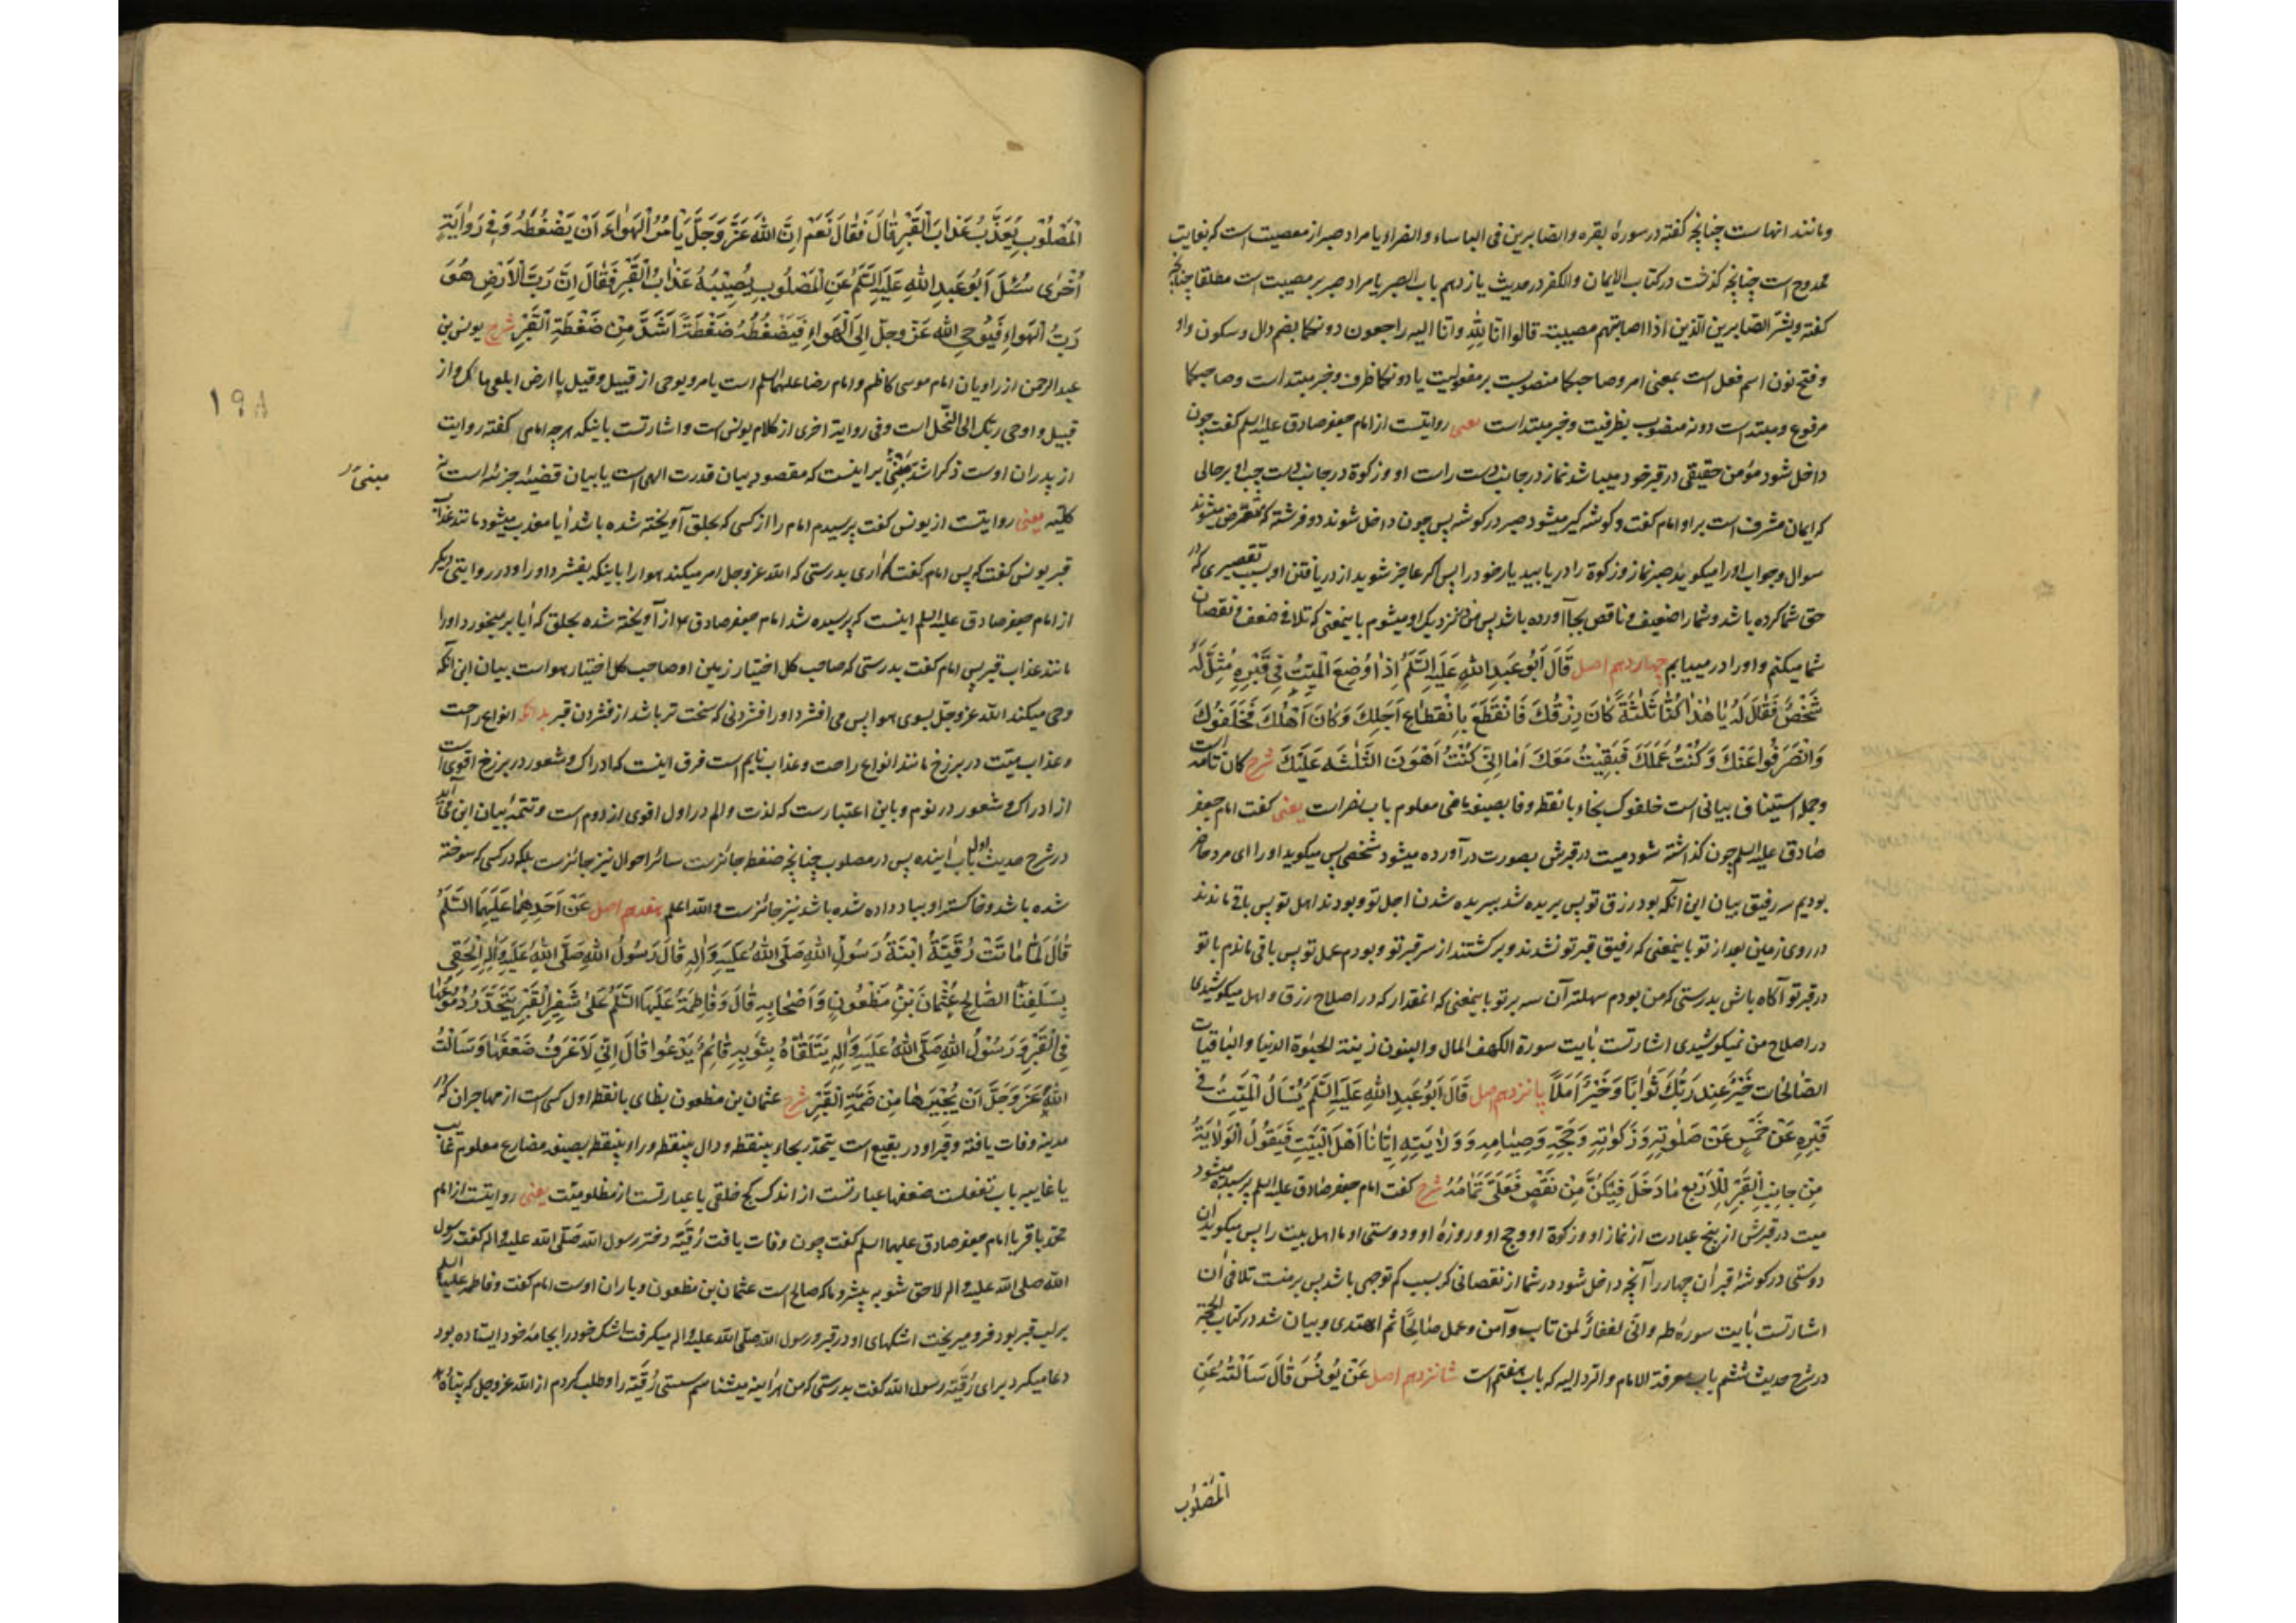 ومانند انهاست چنانچه گفته در سورهٔ بقره والصابرین فی الباساء والضراء یا مراد صبر از معصیت است که بغایت
ممدوح است چنانچه گذشت در کتاب الایمان والکفر در حدیث یازدهم باب الصبر یا مراد صبر بر مصیبت است مطلقا چنانچه
گفته وبشر الصابرین الذین اذا اصابتهم مصیبة قالوا انا لله وانا الیه راجعون دونکما بضم دال وسکون واو
وفتح نون اسم فعل است بمعنی امر وصاحبکما منصوبست بر مفعولیت یا دونکما ظرف وخبر مبتداست وصاحبکما
مرفوع ومبتداست دونه منصوب بظرفیت وخبر مبتداست یعنی روایتست از امام جعفر صادق علیه السلم گفت چون
داخل شود مؤمن حقیقی در قبر خود میباشد نماز در جانب دست راست او وزکوة در جانب دست چپ او برحالی
که ایمان مشرف است بر او امام گفت وگوشه گیر میشود صبر در گوشه پس چون داخل شوند دو فرشته که متعرض میشوند
سوال وجواب او را میگوید صبر نماز وزکوة را دریابید یار خود را پس اگر عاجز شوید از دریافتن او بسبب تقصیری که در
حق شما کرده باشد وشما را ضعیف وناقص بجا آورده باشد پس من نزدیک او میشوم باینمعنی که تلافی ضعف ونقصان
شما میکنم واو را درمییابم چهاردهم اصل قَالَ اَبُو عَبدِ اللهِ عَلَیهِ السَّلَمُ اِذٰا وُضِعَ الْمَیِّتُ فِی قَبْرِهِ مُثِّلَ لَهُ
شَخْصٌ فَقٰالَ لَهُ یٰا هٰذٰا کُنّٰا ثَلٰثَةً کٰانَ رِزْقُکَ فَانْقَطَعَ بِانْقِطٰاعِ اَجَلِکَ وَکٰانَ اَهْلُکَ فَخَلَفُوکَ
وَانْصَرَفُوا عَنْکَ وَکُنْتُ عَمَلَکَ فَبَقِیتُ مَعَکَ اَمٰا اِنِّی کُنْتُ اَهْوَنَ الثَّلٰثَهِ عَلَیْکَ شرح کان تامه است
وجمله استیناف بیانی است خلفوک بخاء با نقطه وفا بصیغه ماضی معلوم باب نصر است یعنی گفت امام جعفر
صادق علیه السلم چون گذاشته شود میت در قبرش بصورت درآورده میشود شخصی پس میگوید او را ای مرد حاضر
بودیم سه رفیق بیان این آنکه بود رزق تو پس بریده شد ببریده شدن اجل تو وبودند اهل تو پس باقی ماندند
در روی زمین بعد از تو باینمعنی که رفیق قبر تو نشدند وبرگشتند از سر قبر تو وبودم عمل تو پس باقی ماندم با تو
در قبر تو آگاه باش بدرستی که من بودم سهلتر آن سه بر تو باینمعنی که انمقدار که در اصلاح رزق واهل میکوشیدی
در اصلاح من نمیکوشیدی اشارتست بآیت سورة الکهف المال والبنون زینة الحیوة الدنیا والباقیات
الصّالحات خَیْرٌ عِنْدَ رَبِّکَ ثَوٰابًا وَخَیْرٌ اَمَلًا پانزدهم اصل قَالَ اَبُو عَبدِ اللهِ عَلَیهِ السَّلَمُ یُسْاَلُ الْمَیِّتُ فِی
قَبْرِهِ عَنْ خَمْسٍ عَنْ صَلٰوتِهِ وَزَکٰوتِهِ وَحَجِّهِ وَصِیٰامِهِ وَوَلٰایَتِهِ اِیّٰانٰا اَهْلَ الْبَیْتِ فَیَقُولُ الْوَلٰایَةُ
مِنْ جٰانِبِ الْقَبْرِ لِلْاَرْبَعِ مٰا دَخَلَ فِیکُنَّ مِنْ نَقْصٍ فَعَلَیَّ تَمٰامُهُ شرح گفت امام جعفر صادق علیه السلم پرسیده میشود
میت در قبرش از پنج عبادت از نماز او وزکوة او وحج او وروزهٔ او ودوستی او ما اهل بیت را پس میگوید آن
دوستی در گوشهٔ قبر آن چهار را آنچه داخل شود در شما از نقصانی که بسبب کم توجهی باشد پس بر منست تلافی آن
اشارتست بآیت سورهٔ طه وانی لغفار لمن تاب وآمن وعمل صالحًا ثم اهتدی وبیان شد در کتاب الحجة
در شرح حدیث ششم باب معرفة الامام والرد الیه که باب هفتم است شانزدهم اصل عَنْ یُونُسَ قٰالَ سَاَلْتُهُ عَنِ
الْمَصْلُوبِ
الْمَصْلُوبِ یُعَذَّبُ عَذٰابَ الْقَبْرِ قٰالَ فَقٰالَ نَعَمْ اِنَّ اللهَ عَزَّ وَجَلَّ یَاْمُرُ الْهَوٰاءَ اَنْ یَضْغَطَهُ وَفِی رِوٰایَةٍ
اُخْرٰی سُئِلَ اَبُو عَبدِ اللهِ عَلَیهِ السَّلَمُ عَنِ الْمَصْلُوبِ یُصِیبُهُ عَذٰابُ الْقَبْرِ فَقٰالَ اِنَّ رَبَّ الْاَرْضِ هُوَ
رَبُّ الْهَوٰاءِ فَیُوحِی اللهُ عَزَّ وَجَلَّ اِلَی الْهَوٰاءِ فَیَضْغَطُهُ ضَغْطَةً اَشَدَّ مِنْ ضَغْطَةِ الْقَبْرِ شرح یونس بن
عبد الرحمن از راویان امام موسی کاظم وامام رضا علیهما السلم است یامر ویوحی از قبیل وقیل یا ارض ابلعی ماءک واز
قبیل واوحی ربک الی النحل است وفی روایة اخری از کلام یونس است واشارتست باینکه هرچه امامی گفته روایت
از پدران اوست ذکر اشد مبنی بر اینست که مقصود بیان قدرت الهی است یا بیان قضیهٔ جزئیه است نه
مبنی
کلیه یعنی روایتست از یونس گفت پرسیدم امام را از کسی که بحلق آویخته شده باشد آیا معذب میشود مانند عذاب
قبر یونس گفت که پس امام گفت که آری بدرستی که الله عز وجل امر میکند هوا را باینکه بفشرد او را ودر روایتی دیگر
از امام جعفر صادق علیه السلم اینست که پرسیده شد امام جعفر صادق ع از آویخته شده بحلق که آیا برمیخورد او را
مانند عذاب قبر پس امام گفت بدرستی که صاحب کل اختیار زمین او صاحب کل اختیار هواست بیان این آنکه
وحی میکند الله عز وجل بسوی هوا پس می افشرد او را فشردنی که سخت تر باشد از فشردن قبر بدانکه انواع راحت
وعذاب میّت در برزخ مانند انواع راحت وعذاب نایم است فرق اینست که ادراک وشعور در برزخ اقوی است
از ادراک وشعور در نوم وباین اعتبارست که لذت والم در اول اقوی از دوم است وتتمهٔ بیان این می آید
در شرح حدیث اول باب آینده پس در مصلوب چنانچه ضغطه جائزست سائر احوال نیز جائزست بلکه در کسی که سوخته
شده باشد وخاکستر او بباد داده شده باشد نیز جائزست والله اعلم هفدهم اصل عَنْ اَحَدِهِمٰا عَلَیْهِمَا السَّلَمُ
قٰالَ لَمّٰا مٰاتَتْ رُقَیَّةُ ابْنَةُ رَسُولِ اللهِ صَلَّی اللهُ عَلَیهِ وَاٰلِهِ قٰالَ رَسُولُ اللهِ صَلَّی اللهُ عَلَیهِ وَاٰلِهِ اِلْحَقِی
بِسَلَفِنَا الصّٰالِحِ عُثْمٰانَ بْنِ مَظْعُونٍ وَاَصْحٰابِهِ قٰالَ وَفٰاطِمَةُ عَلَیْهَا السَّلَمُ عَلٰی شَفِیرِ الْقَبْرِ یَتَحَدَّرُ دُمُوعُهٰا
فِی الْقَبْرِ وَرَسُولُ اللهِ صَلَّی اللهُ عَلَیهِ وَاٰلِهِ یَتَلَقّٰاهُ بِثَوْبِهِ قٰائِمٌ یَدْعُوا قٰالَ اِنِّی لَاَعْرِفُ ضَعْفَهٰا وَسَاَلْتُ
اللهَ عَزَّ وَجَلَّ اَنْ یُجِیرَهٰا مِنْ ضَمَّةِ الْقَبْرِ شرح عثمان بن مظعون بظای بانقطه اول کسی است از مهاجران که در
مدینه وفات یافته وقبر او در بقیع است یتحدر بحاء بینقطه ودال بینقطه وراء بینقطه بصیغه مضارع معلوم غایب
یا غایبه باب تفعلست ضعفها عبارتست از اندک کج خلقی یا عبارتست از مظلومیت یعنی روایتست از امام
محمد باقر یا امام جعفر صادق علیهما السلم گفت چون وفات یافت رُقَیَّه دختر رسول الله صلی الله علیه واله گفت رسول
الله صلی الله علیه واله لاحق شو به پیشرو ما که صالح است عثمان بن مظعون ویاران اوست امام گفت وفاطمه علیها السلم
بر لب قبر بود فرو میریخت اشکهای او در قبر ورسول الله صلی الله علیه واله میگرفت اشک خود را بجامهٔ خود ایستاده بود
دعا میکرد برای رُقَیَّه رسول الله گفت بدرستی که من هرآینه میشناسم سستی رُقَیَّه را وطلب کردم از الله عز وجل که پناه
۱۹۸